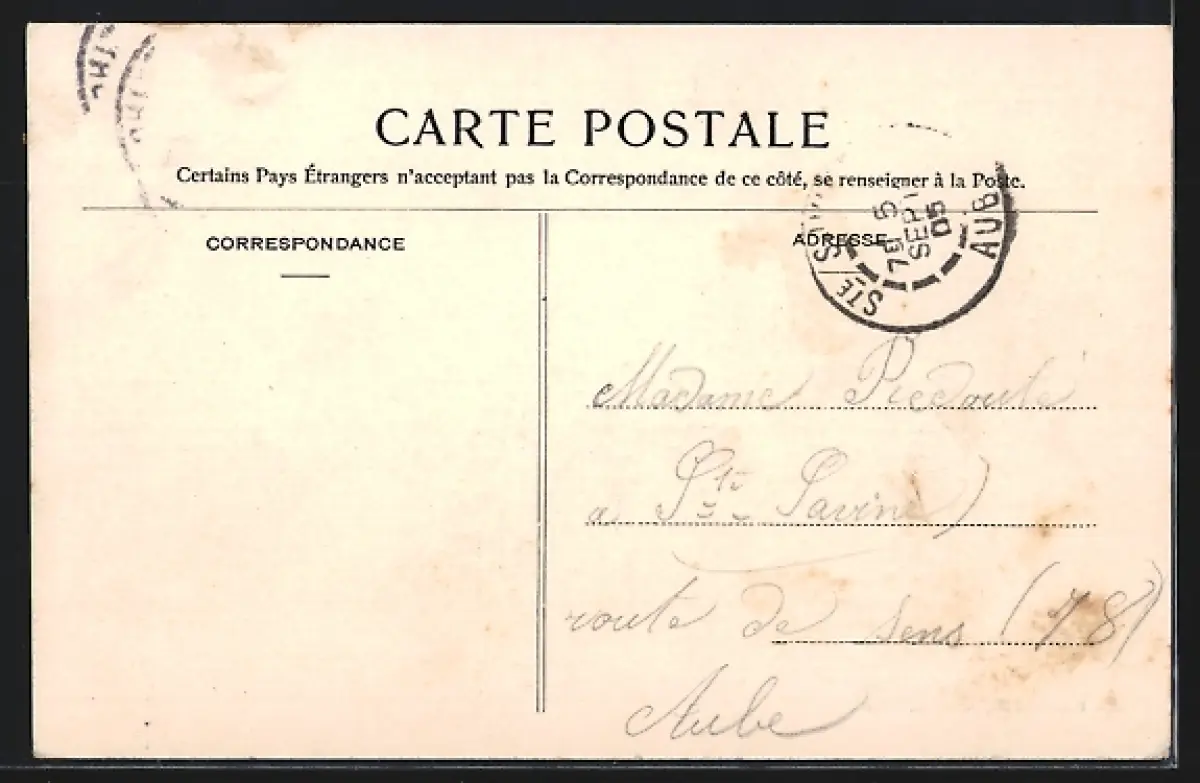 CARTE POSTALE
Certains Pays Étrangers n'acceptant pas la Correspondance de ce côté, se renseigner à la Poste.
CORRESPONDANCE
ADRESSE
STE SAV
AUB
5 SEPT
05
Madame Piedoulé
a Ste Savine
route de Sens (78)
Aube